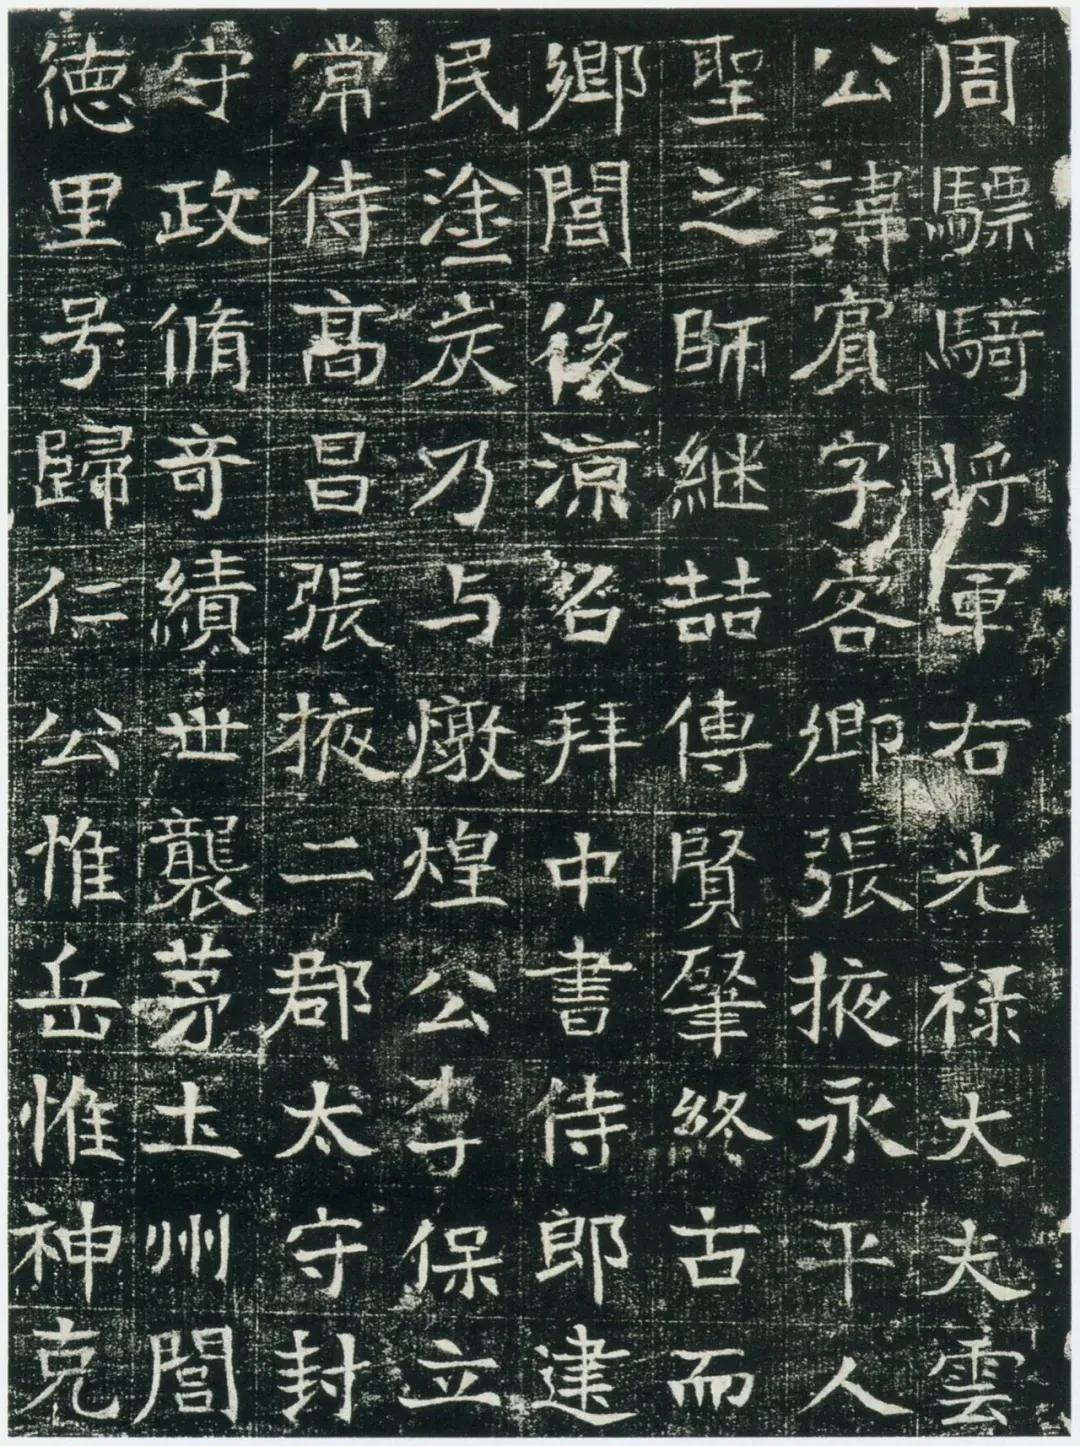 周驃騎将軍右光祿大夫雲
公諱賓字客卿張掖永平人
聖之師継喆傳賢肇終古而
鄉閭後涼召拜中書侍郎建
民塗炭乃与燉煌公李保立
常侍髙昌張掖二郡太守封
守政脩奇績世襲茅土州閭
徳里号歸仁公惟岳惟神克